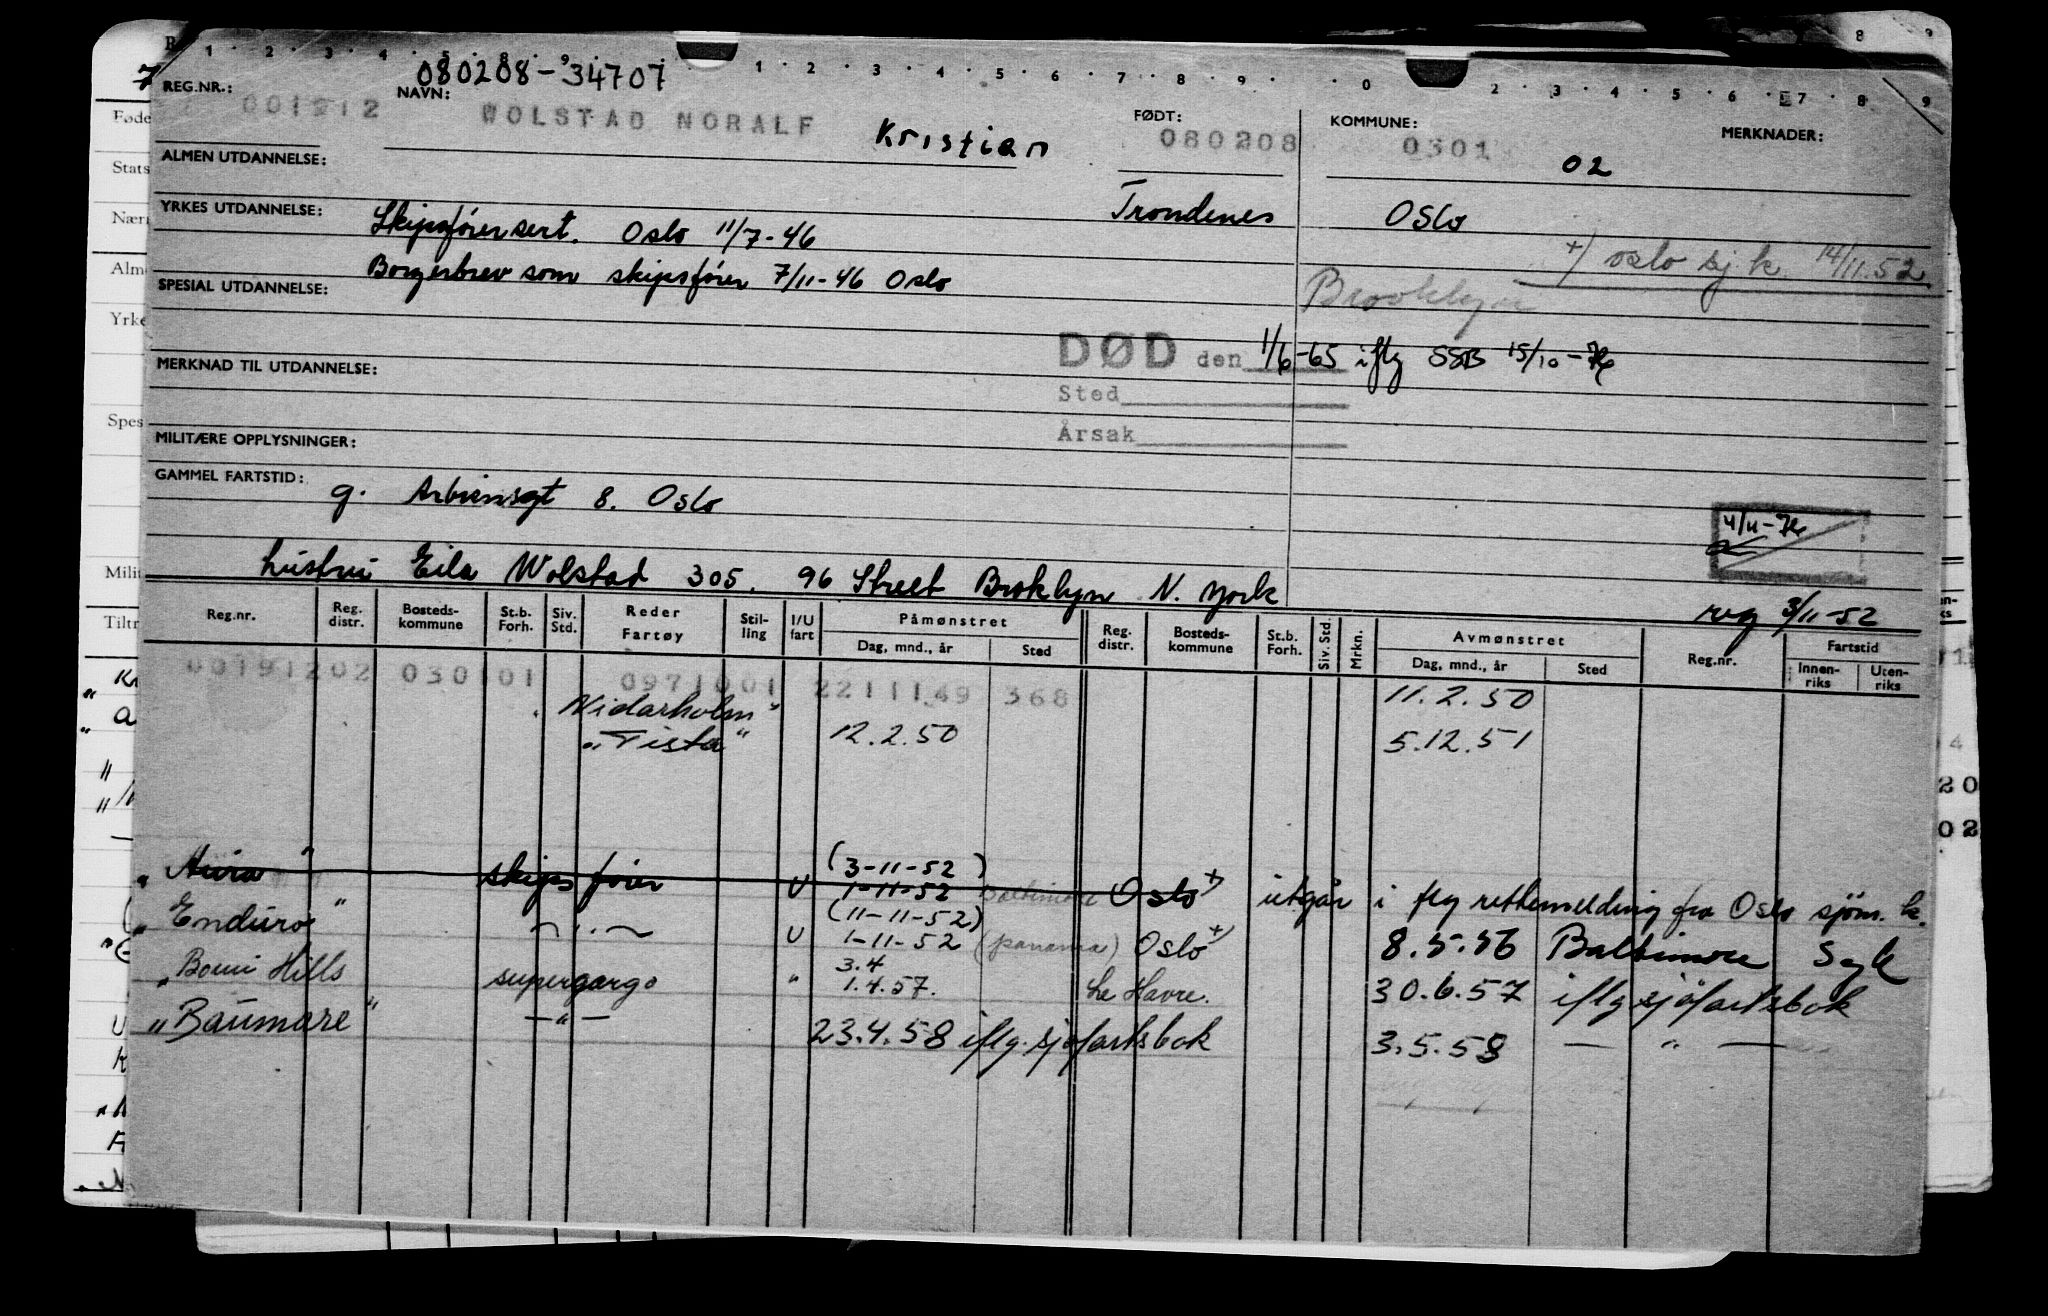 1 2 3 4 5 8 9 1 2 3 4 5 6 7 8 9 0 2 3 4 5 6 7 8 9
080208-34707
REG.NR.: 001912 NAVN: WOLSTAD NORALF Kristian FØDT: 080208 KOMMUNE: 0301 02 MERKNADER:
ALMEN UTDANNELSE:
Trondenes Oslo
YRKES UTDANNELSE: Skipsførersert. Oslo 11/7-46
+/ oslo sj.k. 14/11.52
Borgerbrev som skipsfører 7/11-46 Oslo
Brooklyn
SPESIAL UTDANNELSE:
DØD den 1/6-65 iflg SSB 15/10-76
MERKNAD TIL UTDANNELSE:
Sted
Årsak
MILITÆRE OPPLYSNINGER:
GAMMEL FARTSTID:
g. Arbiensgt 8. Oslo
4/11-76
Hustru Eila Wolstad 305. 96 Street Broklyn N. York
reg 3/11-52
Reg.nr. Reg. distr. Bosteds- kommune St.b. Forh. Siv. Std. Reder Fartøy Stil- ling I/U fart Påmønstret Dag, mnd., år Sted Reg. distr. Bosteds- kommune St.b. Forh. Siv. Std. Mrkn. Avmønstret Dag, mnd., år Sted Reg.nr. Fartstid Innen- riks Uten- riks
00191202 030101 0971001 221149 368
"Vidarholm" 11.2.50
"Tista" 12.2.50 5.12.51
(3-11-52)
skipsfører U 1-11-52 Baltimore Oslo+ utgår iflg rettemelding fra Oslo sjøm. k.
(11-11-52)
"Enduro" — " — U 1-11-52 (panama) Oslo+ 8.5.56 Baltimore Syk
3.4
"Bomi Hills supergargo " 1.4.57. Le Havre. 30.6.57 iflg sjøfartsbok
"Baumare" — " — 23.4.58 iflg. sjøfartsbok 3.5.58 — " —